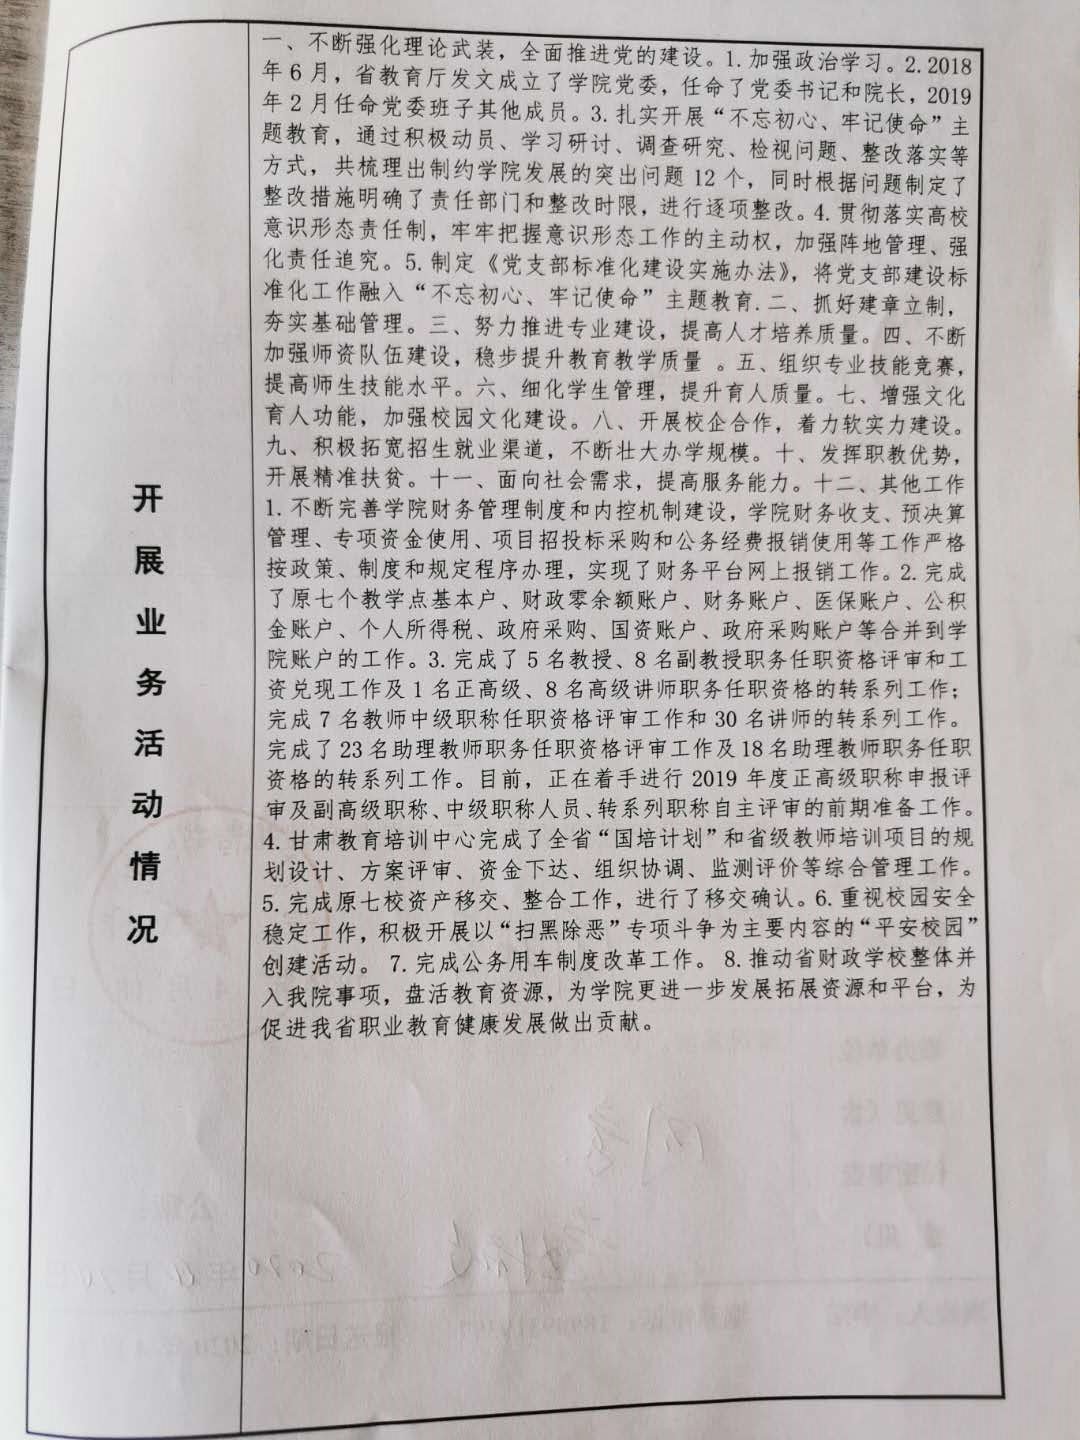 开展业务活动情况
一、不断强化理论武装，全面推进党的建设。1.加强政治学习。2.2018
年6月，省教育厅发文成立了学院党委，任命了党委书记和院长，2019
年2月任命党委班子其他成员。3.扎实开展“不忘初心、牢记使命”主
题教育，通过积极动员、学习研讨、调查研究、检视问题、整改落实等
方式，共梳理出制约学院发展的突出问题12个，同时根据问题制定了
整改措施明确了责任部门和整改时限，进行逐项整改。4.贯彻落实高校
意识形态责任制，牢牢把握意识形态工作的主动权，加强阵地管理、强
化责任追究。5.制定《党支部标准化建设实施办法》，将党支部建设标
准化工作融入“不忘初心、牢记使命”主题教育.二、抓好建章立制，
夯实基础管理。三、努力推进专业建设，提高人才培养质量。四、不断
加强师资队伍建设，稳步提升教育教学质量 。五、组织专业技能竞赛，
提高师生技能水平。六、细化学生管理，提升育人质量。七、增强文化
育人功能，加强校园文化建设。八、开展校企合作，着力软实力建设。
九、积极拓宽招生就业渠道，不断壮大办学规模。十、发挥职教优势，
开展精准扶贫。十一、面向社会需求，提高服务能力。十二、其他工作
1.不断完善学院财务管理制度和内控机制建设，学院财务收支、预决算
管理、专项资金使用、项目招投标采购和公务经费报销使用等工作严格
按政策、制度和规定程序办理，实现了财务平台网上报销工作。2.完成
了原七个教学点基本户、财政零余额账户、财务账户、医保账户、公积
金账户、个人所得税、政府采购、国资账户、政府采购账户等合并到学
院账户的工作。3.完成了5名教授、8名副教授职务任职资格评审和工
资兑现工作及1名正高级、8名高级讲师职务任职资格的转系列工作；
完成7名教师中级职称任职资格评审工作和30名讲师的转系列工作。
完成了23名助理教师职务任职资格评审工作及18名助理教师职务任职
资格的转系列工作。目前，正在着手进行2019年度正高级职称申报评
审及副高级职称、中级职称人员、转系列职称自主评审的前期准备工作。
4.甘肃教育培训中心完成了全省“国培计划”和省级教师培训项目的规
划设计、方案评审、资金下达、组织协调、监测评价等综合管理工作。
5.完成原七校资产移交、整合工作，进行了移交确认。6.重视校园安全
稳定工作，积极开展以“扫黑除恶”专项斗争为主要内容的“平安校园”
创建活动。 7.完成公务用车制度改革工作。 8.推动省财政学校整体并
入我院事项，盘活教育资源，为学院更进一步发展拓展资源和平台，为
促进我省职业教育健康发展做出贡献。